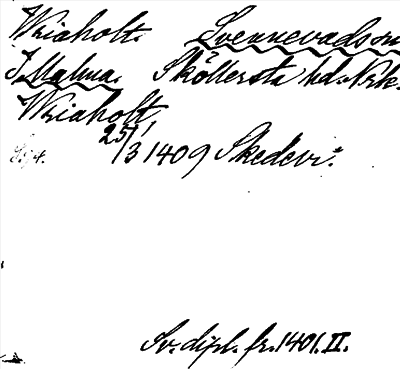 Wriaholt. Svennevads sn
I Malma. Sköllersta hd. Nrk.
Wriaholt,
25/3 1409 Skedevi.
Sv. dipl. fr. 1401. II.